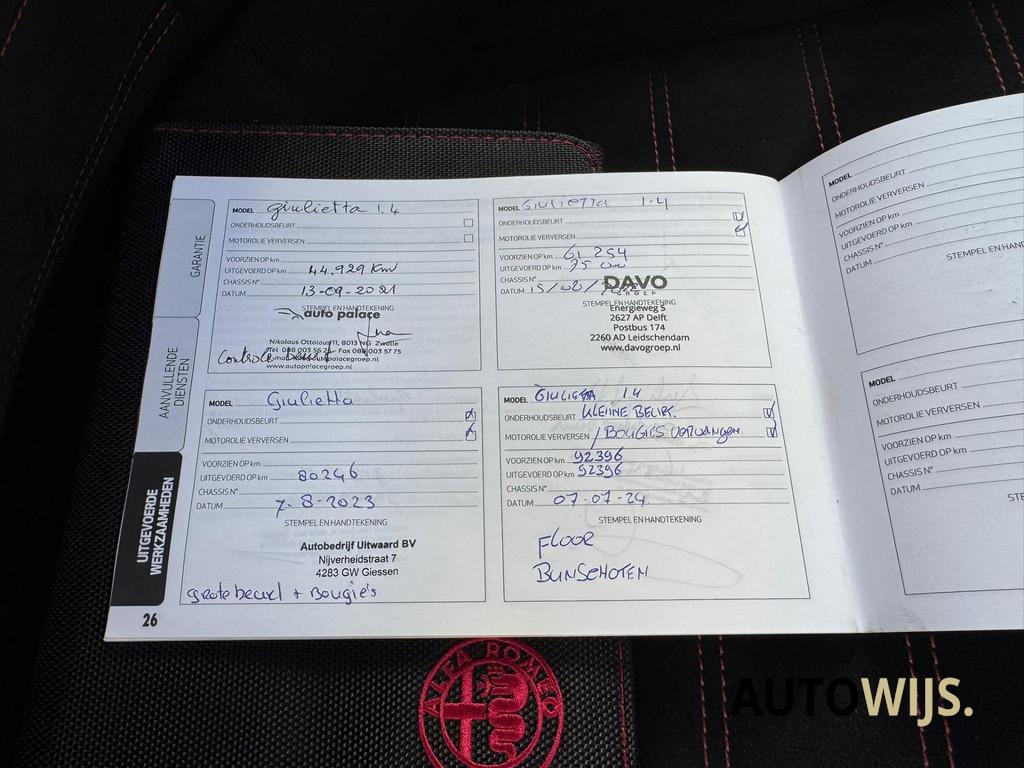 GARANTIE
AANVULLENDE
DIENSTEN
UITGEVOERDE
WERKZAAMHEDEN
26
MODEL Giulietta 1.4
ONDERHOUDSBEURT
MOTOROLIE VERVERSEN
VOORZIEN OP km
UITGEVOERD OP km 44.929 Km
CHASSIS N°
DATUM 13-09-2021
STEMPEL EN HANDTEKENING
auto palace
Nikolaus Ottolaus 11, 8013 NG Zwolle
Fax 088 003 57 75
Controle beurt
www.autopalacegroep.nl
MODEL Giulietta 1.4
ONDERHOUDSBEURT
MOTOROLIE VERVERSEN
VOORZIEN OP km 61 254
UITGEVOERD OP km
CHASSIS N°
DATUM 15/08/
DAVO
GROEP
STEMPEL EN HANDTEKENING
Energieweg 5
2627 AP Delft
Postbus 174
2260 AD Leidschendam
www.davogroep.nl
MODEL Giulietta
ONDERHOUDSBEURT
MOTOROLIE VERVERSEN
VOORZIEN OP km
UITGEVOERD OP km 80246
CHASSIS N°
DATUM 7-8-2023
STEMPEL EN HANDTEKENING
Autobedrijf Uitwaard BV
Nijverheidstraat 7
4283 GW Giessen
grote beurt + Bougie's
MODEL GIULIETTA 1.4
ONDERHOUDSBEURT KLEINE BEURT.
MOTOROLIE VERVERSEN / BOUGIES vervangen
VOORZIEN OP km 92396
UITGEVOERD OP km 92396
CHASSIS N°
DATUM 07-07-24
STEMPEL EN HANDTEKENING
FLOOR
BUNSCHOTEN
MODEL
ONDERHOUDSBEURT
MOTOROLIE VERVERSEN
VOORZIEN OP km
UITGEVOERD OP km
CHASSIS N°
DATUM
STEMPEL EN HAND
MODEL
ONDERHOUDSBEURT
MOTOROLIE VERVERSEN
VOORZIEN OP km
UITGEVOERD OP km
CHASSIS N°
DATUM
STE
ALFA ROMEO
AUTOWIJS.